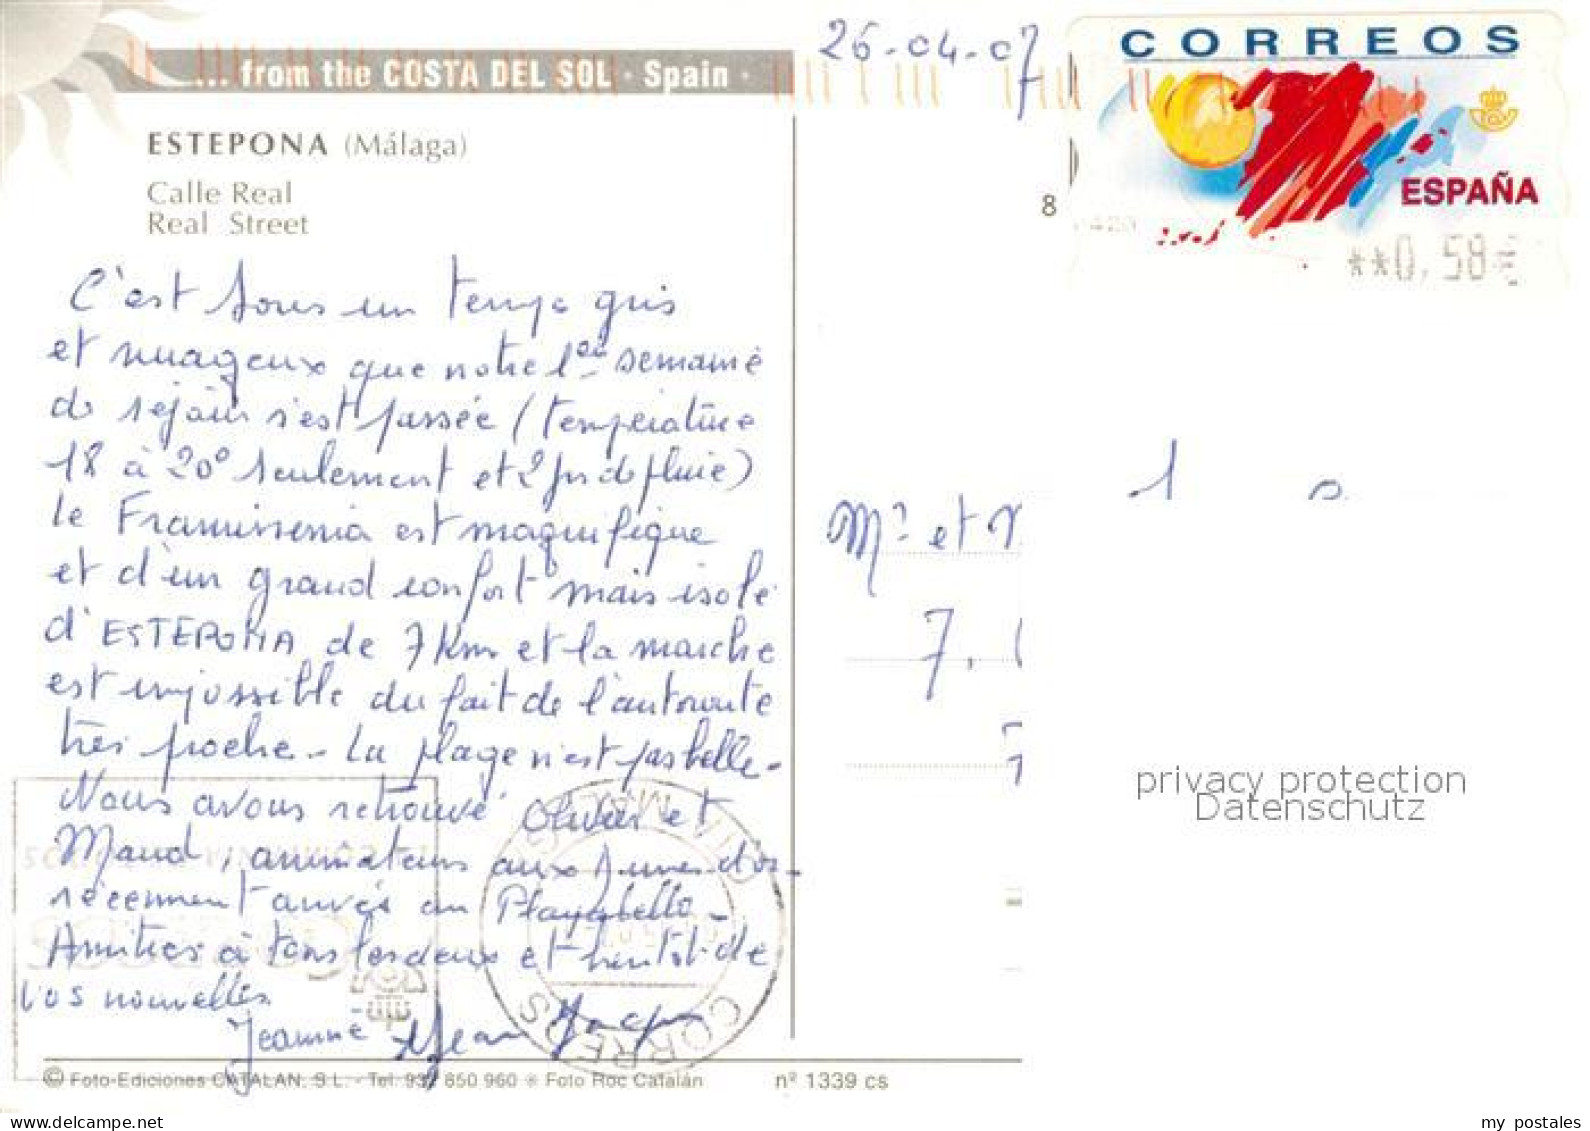 ... from the COSTA DEL SOL · Spain ·
ESTEPONA (Málaga)
Calle Real
Real Street
C'est sous un temps gris
et nuageux que notre 1ère semaine
de séjour s'est passée (température
18 à 20° seulement et 2 jrs de pluie)
le Framissenia est magnifique
et d'un grand confort mais isolé
d'ESTEPONA de 7 Km et la marche
est impossible du fait de l'autoroute
très proche - La plage n'est pas belle -
Nous avons retrouvé Olivier et
Maud, animateurs aux Junes d'or -
récemment arrivés au Playabello -
Amitiés à tous les deux et bientôt de
vos nouvelles
Jeanne et Jean Jacques
© Foto-Ediciones CATALAN, S.L. - Tel. 937 850 960 * Foto Roc Catalán
nº 1339 cs
26-04-07
CORREOS
ESPAÑA
8
**0,58€
Mr et
7,
CORREOS
privacy protection
Datenschutz
www.delcampe.net
my_postales